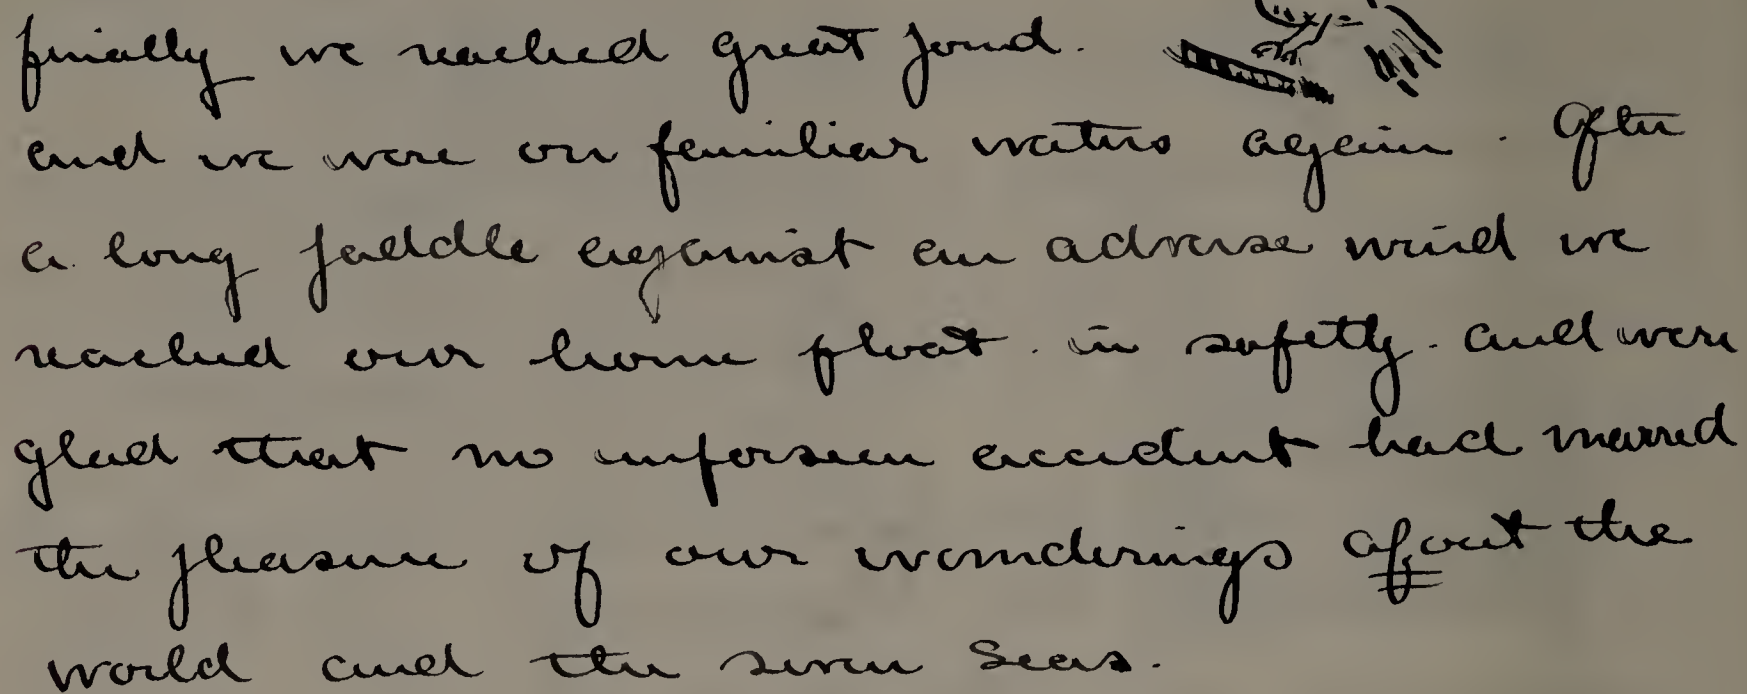 finally we reached great pond.
and we were on familiar waters again. After
a long paddle against an adverse wind we
reached our home float. in safetly. and were
glad that no unforseen accident had marred
the pleasure of our wonderings afout the
world and the seven seas.